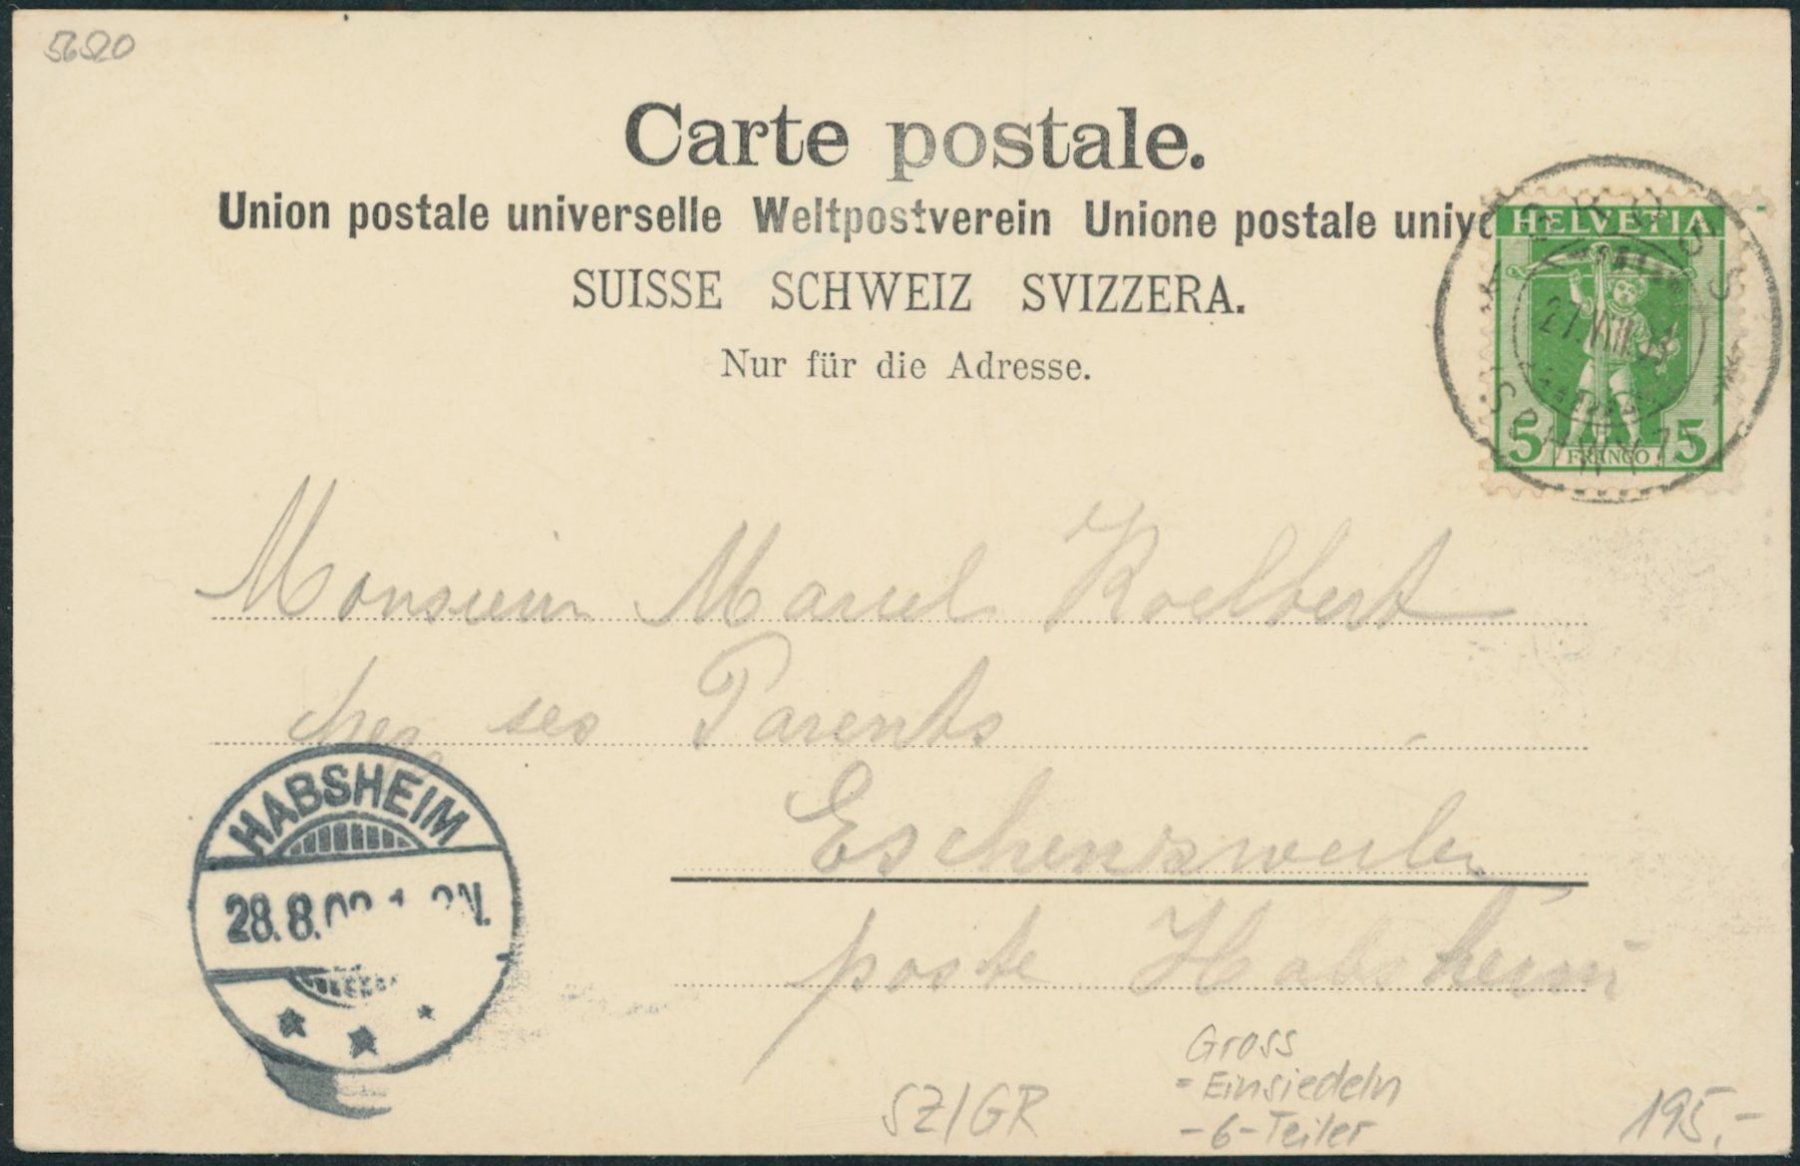 5620
Carte postale.
Union postale universelle Weltpostverein Unione postale unive
SUISSE SCHWEIZ SVIZZERA.
Nur für die Adresse.
HELVETIA
GROSS
SCHWYZ
5 FRANCO 5
Monsieur Marcel Koelbert
chez ses Parents
Eschenzweiler
poste Habsheim
HABSHEIM
28.8.09
SZ/GR
Gross
- Einsiedeln
- 6-Teiler
195.-